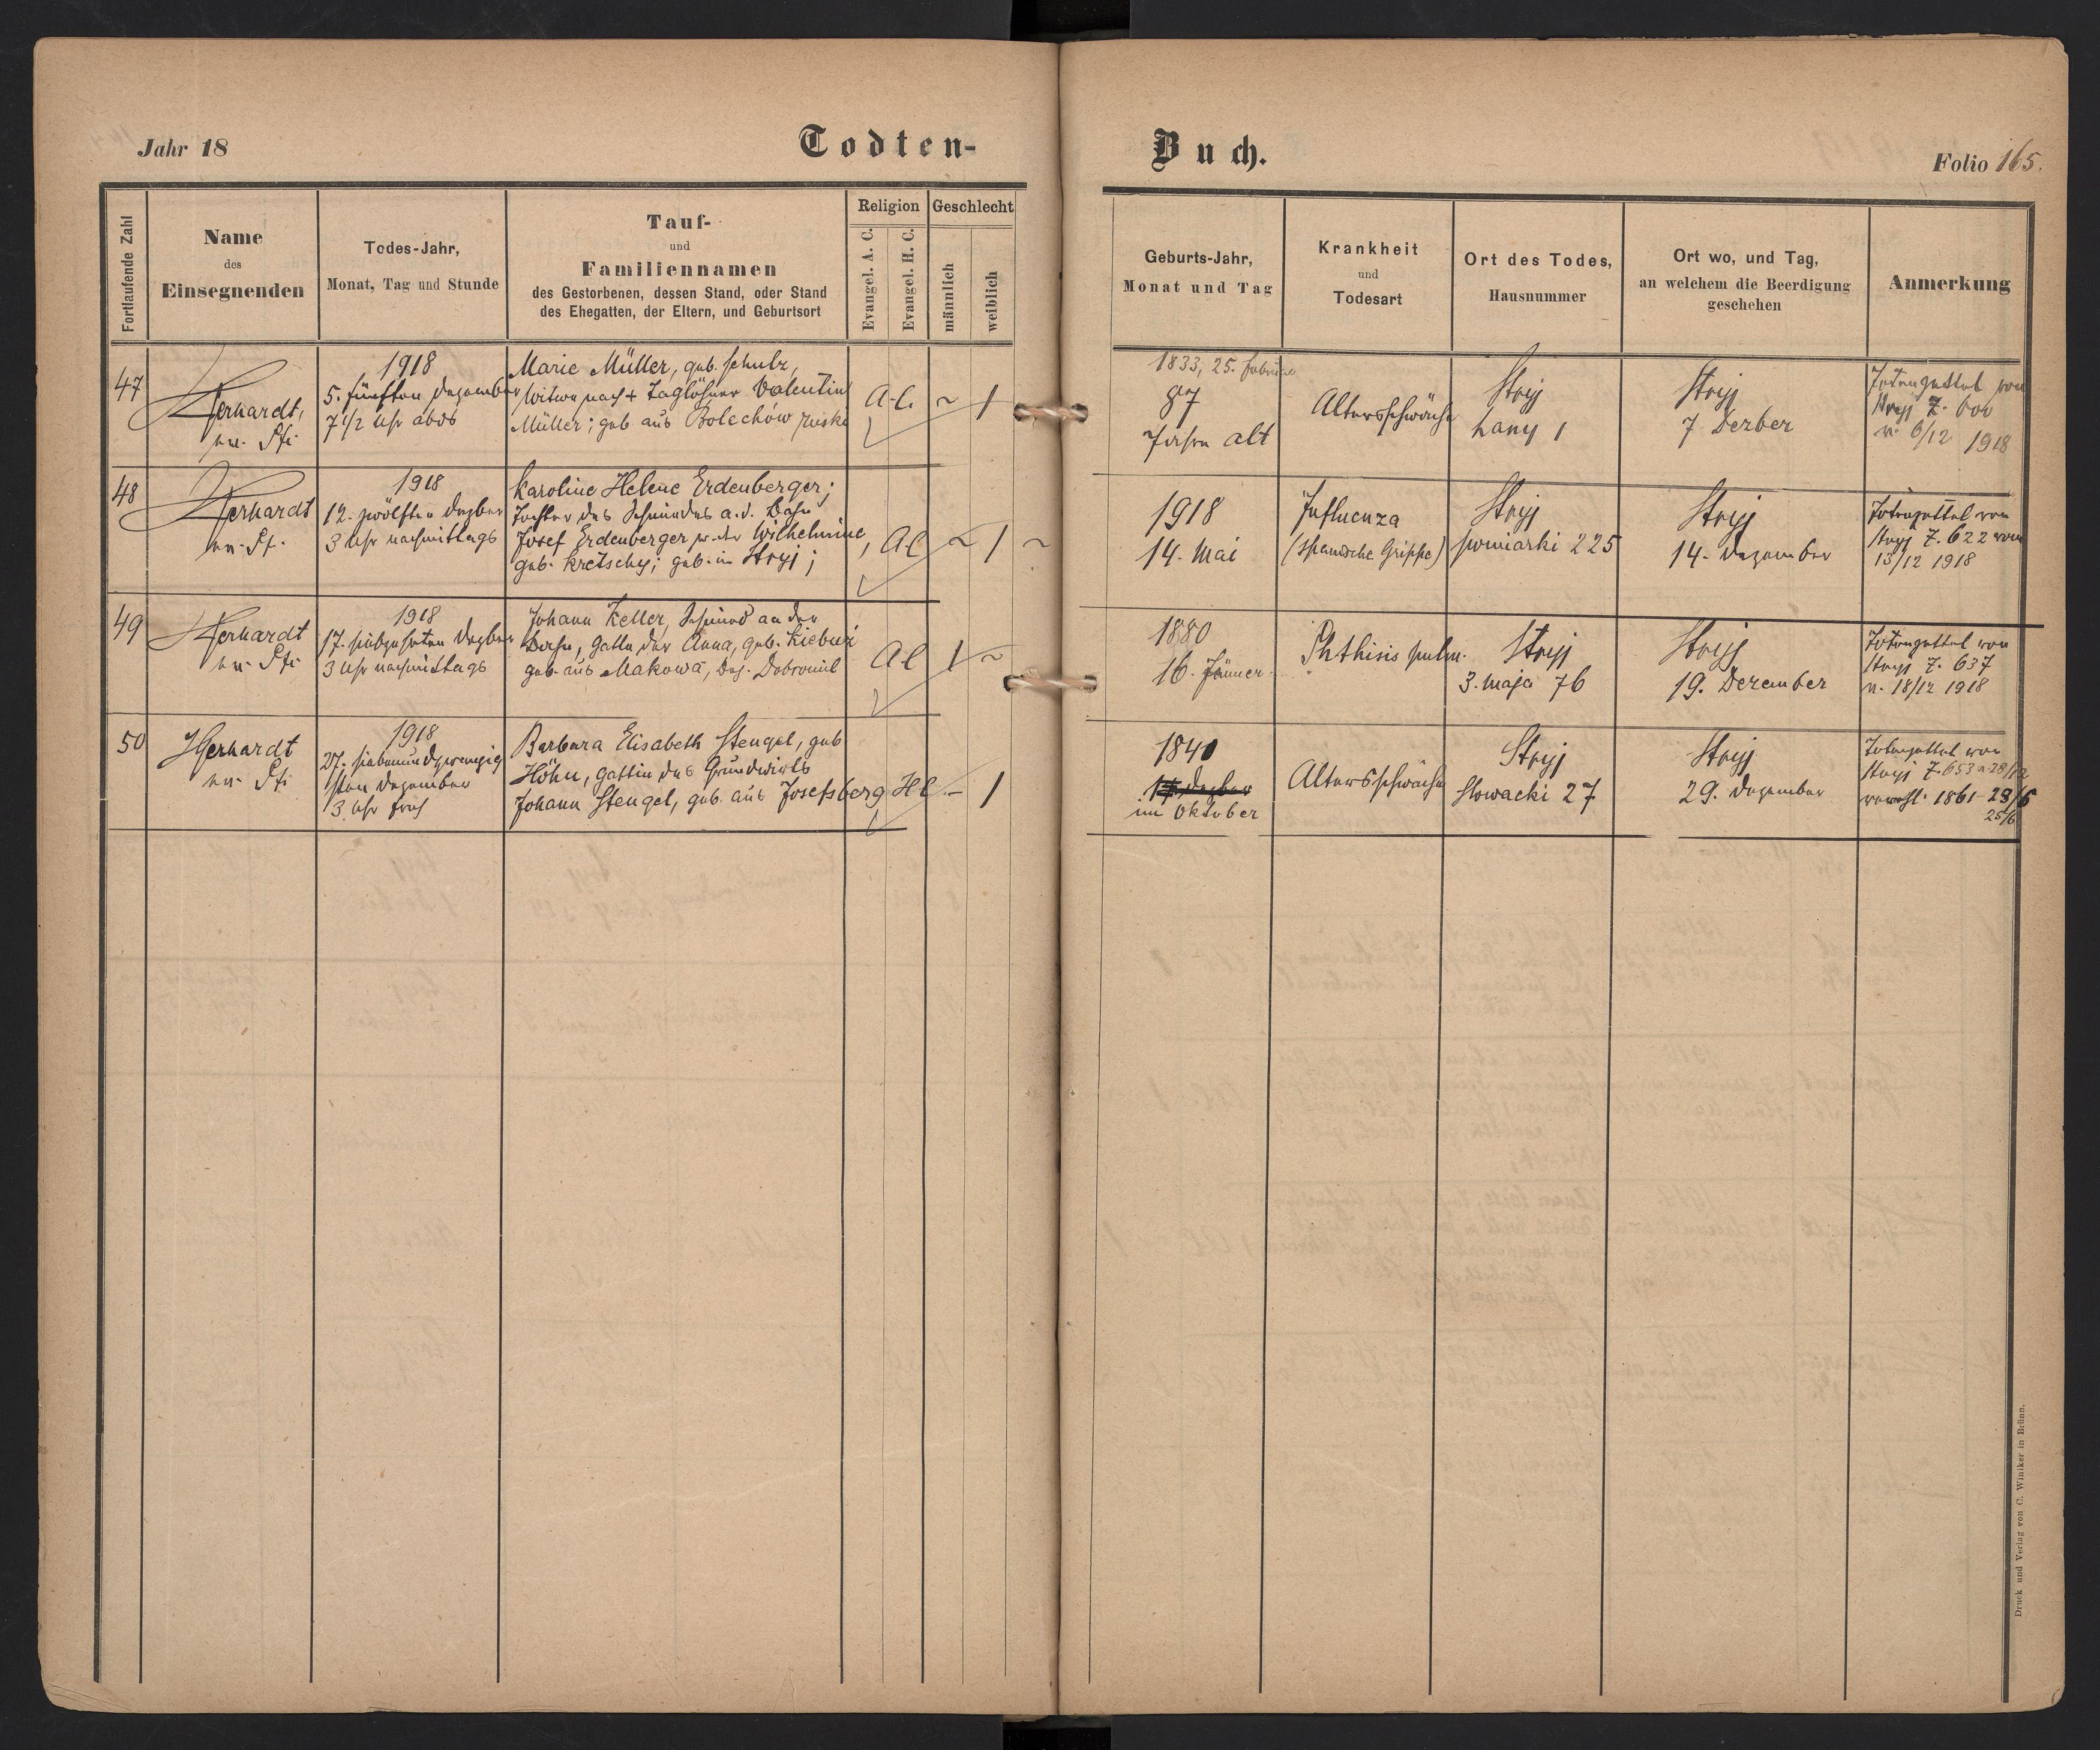 Jahr 18
Todten-
Buch.
Folio 165.
Fortlaufende Zahl
Name
des
Einsegnenden
Todes-Jahr,
Monat, Tag und Stunde
Tauf-
und
Familiennamen
des Gestorbenen, dessen Stand, oder Stand
des Ehegatten, der Eltern, und Geburtsort
Religion
Evangel. A. C.
Evangel. H. C.
Geschlecht
männlich
weiblich
Geburts-Jahr,
Monat und Tag
Krankheit
und
Todesart
Ort des Todes,
Hausnummer
Ort wo, und Tag,
an welchem die Beerdigung
geschehen
Anmerkung
47
Gerhardt,
ev. Pf.
1918
5. fünften Dezember
7 1/2 Uhr abds
Marie Müller, geb. Schulz,
Witwe nach + Taglöhner Valentin
Müller; geb aus Bolechów ruski
A.C.
~
1
1833, 25. Februar
87
Jahre alt
Altersschwäche
Stryj
Lany 1
Stryj
7 Dezber
Totenzettel von
Stryj Z. 600
v. 6/12 1918
48
Gerhardt
ev. Pf.
1918
12. zwölften Dezber
3 Uhr nachmittags
Karoline Helene Erdenberger;
Tochter des Schmiedes a. d. Bahn
Josef Erdenberger u. der Wilhelmine,
geb. Kretschy; geb. in Stryj;
A C
~
1
1918
14. Mai
Influenza
(spanische Grippe)
Stryj
225
Stryj
14. Dezember
Totenzettel von
Stryj Z. 622 vom
13/12 1918
49
Gerhardt
ev. Pf.
1918
17. siebzehnten Dezber
3 Uhr nachmittags
Johann Keller, Schmied an der
Bahn, Gatte der Anna, geb.
geb. aus Makowa, Bez. Dobromil
A C
1
~
1880
16. Jänner
Phthisis pulm.
Stryj
3. maja 76
Stryj
19. Dezember
Totenzettel von
Stryj Z. 637
v. 18/12 1918
50
Gerhardt
ev. Pf.
1918
27. siebenundzwanzig
sten Dezember
3 Uhr früh
Barbara Elisabeth Stengel, geb
Höhn, Gattin des Grundwirts
Johann Stengel, geb. aus Josefsberg
H C
–
1
1840
17. Dezber
im Oktober
Altersschwäche
Stryj
Slowacki 27
Stryj
29. Dezember
Totenzettel von
Stryj Z. 653 v. 28/12
verehl. 1861 - 23/6
25/6
Druck und Verlag von C. Winiker in Brünn.